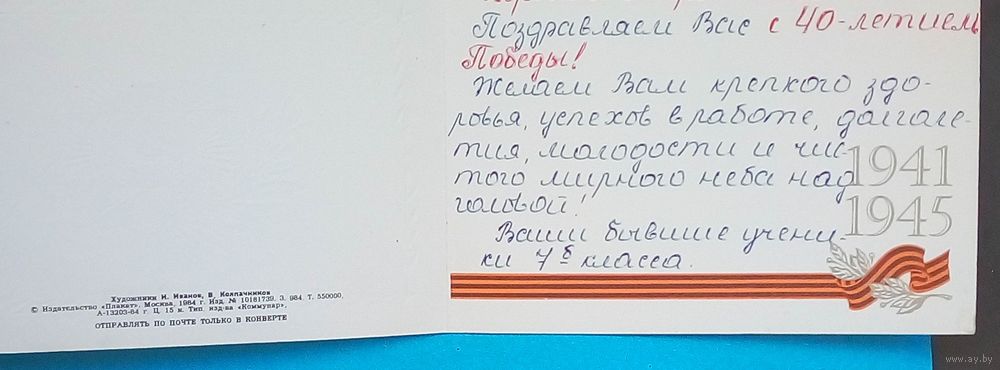 Поздравляем Вас с 40-летием
Победы!
Желаем Вам крепкого здо-
ровья, успехов в работе, долгале-
тия, молодости и чис-
того мирного неба над
головой!
Ваши бывшие учени-
ки 7б класса.
1941
1945
Художники И. Иванов, В. Колпачников
© Издательство «Плакат», Москва, 1984 г. Изд. № 10181739. З. 984. Т. 550000.
А-13203-84 г. Ц. 15 к. Тип. изд-ва «Коммунар».
ОТПРАВЛЯТЬ ПО ПОЧТЕ ТОЛЬКО В КОНВЕРТЕ
www.ay.by